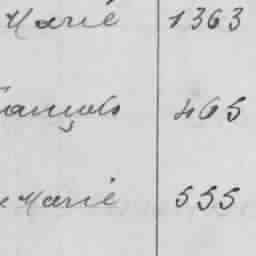 Marie 1363
François 465
Marie 555